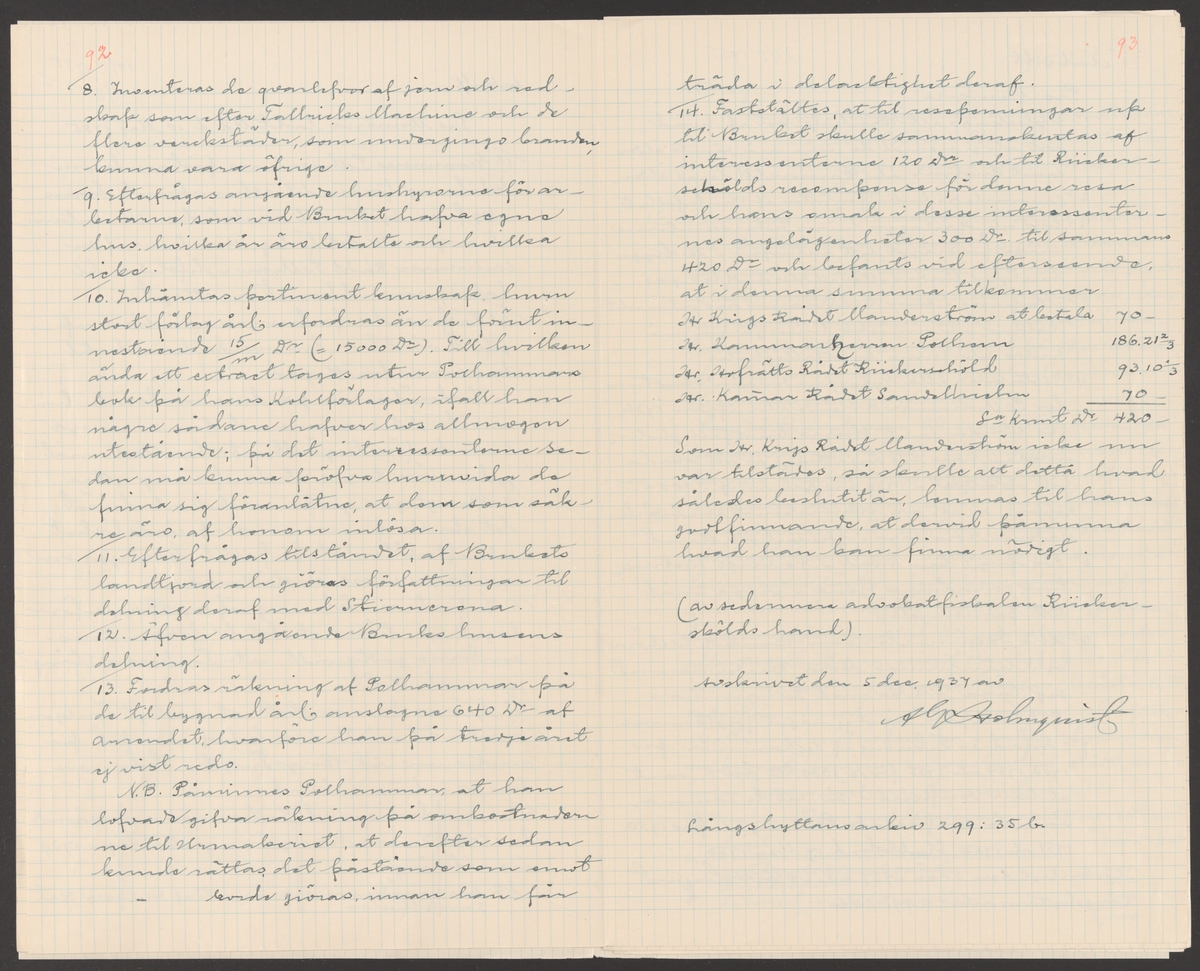 92
8. Inventeras de qvarlefvor af jern och red-
skap som efter Tallricks Machine och de
flere verckstäder, som undergingo branden,
kunna vara öfrige.
9. Efterfrågas angående hushyrorne för ar-
betarne, som vid Bruket hafva egne
hus, hvilka är äro betalte och hvilka
icke.
10. Inhämtas pertinent kunskap, huru
stort förlag årl: erfordras än de förut in-
nestående 15/m Dr (= 15000 Dr). Till hvilken
ända ett extract tages utur Polhammars
bok på hans Kohlförlager, ifall han
någre sådane hafver hos allmogen
utestående; på det interessenterne se-
dan må kunna pröfva huruvida de
finna sig föranlåtne, at dem som säk-
re äro, af honom inlösa.
11. Efterfrågas tilståndet, af Brukets
landtjord och giöres författningar til
delning deraf med Stierncrona.
12. Äfven angående Bruks husens
delning.
13. Fordras räkning af Polhammar på
de til bygnad årl: anslagne 640 Dr af
arrendet, hvarföre han på tredje året
ej vist redo.
N.B. Påminnes Polhammar, at han
lofvade gifva räkning på omkostnader
ne til Urmakeriet, at derefter sedan
kunde rättas, det påstående som emot
– borde giöras, innan han får
93
träda i delacktighet deraf.
14. Fastställtes, at til resepenningar up
til Bruket skulle sammanskiutas af
interessenterne 120 Dr och til Rücker-
schölds recompense för denne resa
och hans omak i desse interessenter-
nes angelägenheter 300 Dr til sammans
420 Dr och befants vid efterseende,
at i denna summa tilkommer
Hr Krigs Rådet Manderström at betala 70 –
Hr. Kammarherren Polhem 186.21 2/3
Hr. Hofrätts Rådet Rückerschöld 93.10 1/3
Hr. Kam̄ar Rådet Sandelhielm 70 –
Sa Kmnt Dr 420 –
Som Hr. Krigs Rådet Manderström icke nu
var tilstädes, så skulle alt detta hvad
således beslutit är, lemnas til hans
godtfinnande, at dervid påminna
hvad han kan finna nödigt.
(av sedermera advokatfiskalen Rücker-
skölds hand).
Avskrivet den 5 dec. 1937 av
Holmquist
Långshyttans arkiv 299: 35 b.